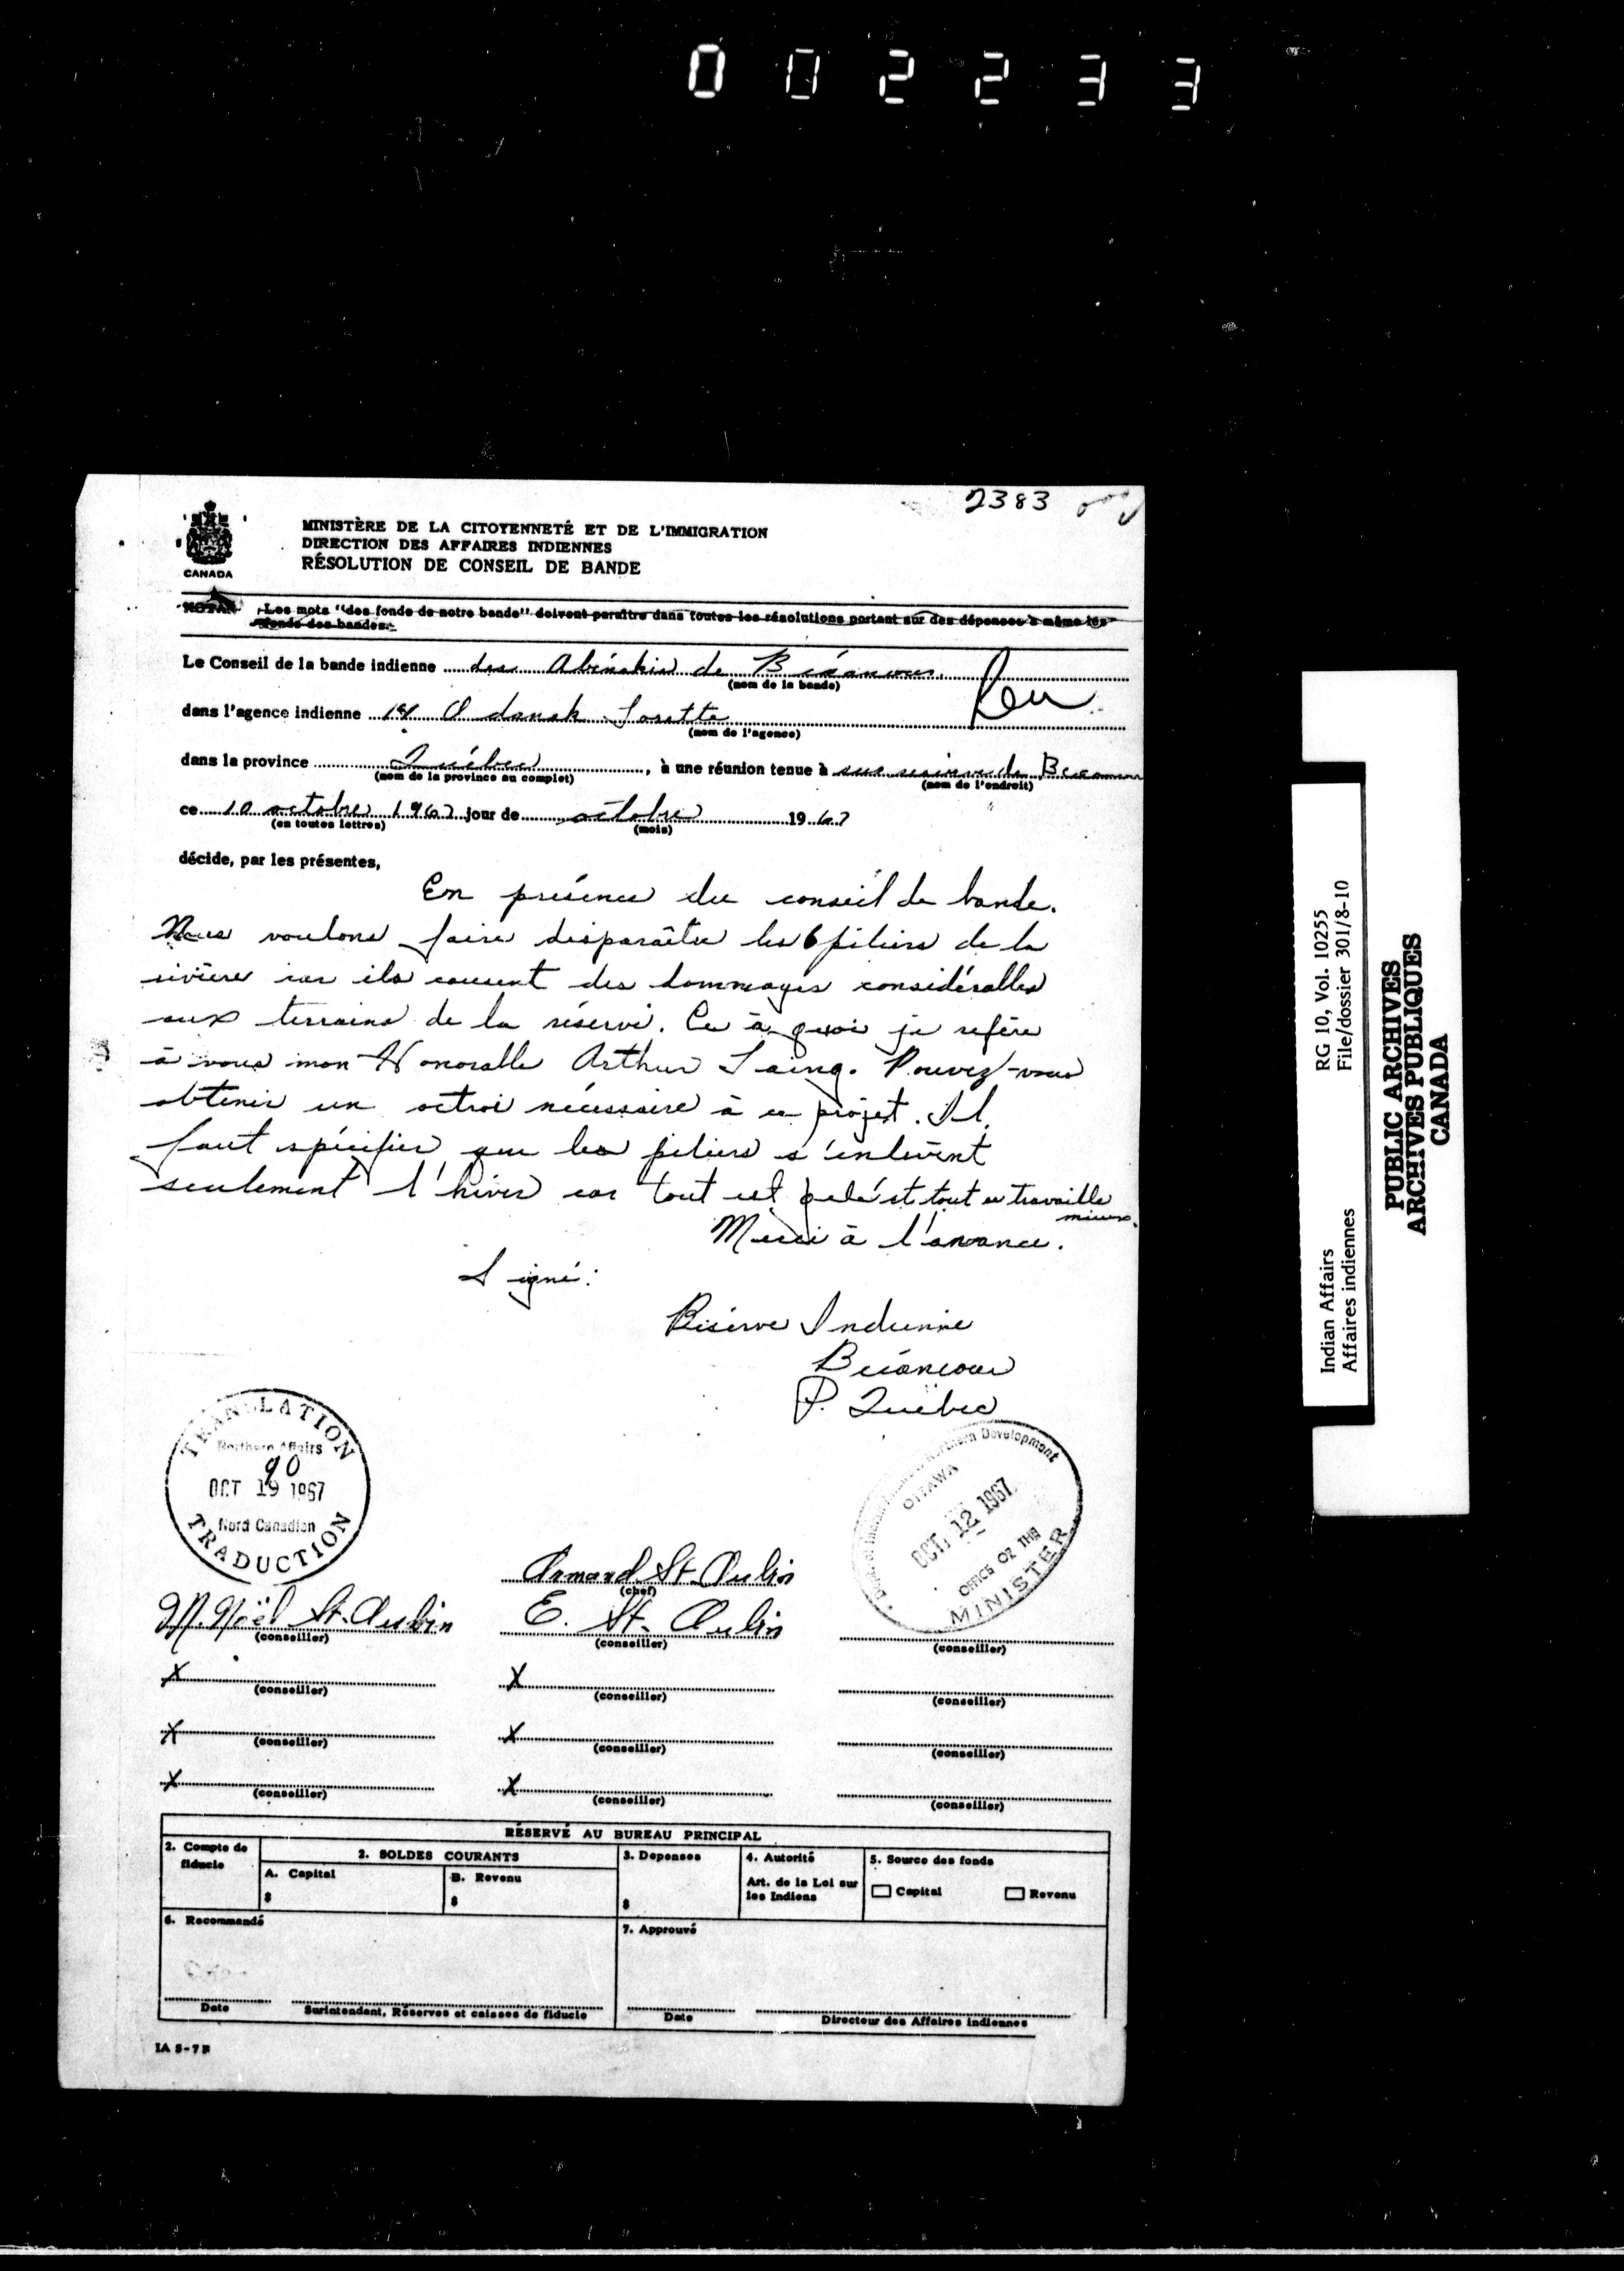 002233
2383
CANADA
MINISTÈRE DE LA CITOYENNETÉ ET DE L'IMMIGRATION
DIRECTION DES AFFAIRES INDIENNES
RÉSOLUTION DE CONSEIL DE BANDE
NOTA: Les mots "des fonds de notre bande" doivent paraître dans toutes les résolutions portant sur des dépenses à même les
fonds des bandes.
Le Conseil de la bande indienne des Abénakis de Bécancour
(nom de la bande)
dans l'agence indienne Odanak Lorette
(nom de l'agence)
dans la province Québec, à une réunion tenue à de Becancour
(nom de la province au complet) (nom de l'endroit)
ce 10 octobre 1967 jour de octobre 1967
(en toutes lettres) (mois)
décide, par les présentes,
En présence du conseil de bande.
Nous voulons faire disparaître les 6 piliers de la
rivière car ils causent des dommages considérables
aux terrains de la réserve. Ce à quoi je refère
à vous mon Honorable Arthur Laing. Pouvez-vous
obtenir un octroi nécessaire à ce projet. Il
faut spécifier que les piliers s'enlèvent
seulement l'hiver car tout est gelé et tout se travaille
mieux.
Merci à l'avance.
Signé:
Réserve Indienne
Bécancour
P. Québec
TRANSLATION
Northern Affairs
90
OCT 19 1967
Nord Canadien
TRADUCTION
Northern Development
OTTAWA
OCT 12 1967
OFFICE OF THE
MINISTER
Armand St-Aubin
(chef)
M. Noël St-Aubin E. St-Aubin
(conseiller) (conseiller) (conseiller)
X X
(conseiller) (conseiller) (conseiller)
X X
(conseiller) (conseiller) (conseiller)
X X
(conseiller) (conseiller) (conseiller)
RÉSERVÉ AU BUREAU PRINCIPAL
2. Compte de
fiducie
2. SOLDES COURANTS
A. Capital
$
B. Revenu
$
3. Depenses
$
4. Autorité
Art. de la Loi sur
les Indiens
5. Source des fonds
Capital Revenu
6. Recommandé
Date Surintendant, Réserves et caisses de fiducie
7. Approuvé
Date Directeur des Affaires indiennes
IA 5-7 F
Indian Affairs RG 10, Vol. 10255
Affaires indiennes File/dossier 301/8-10
PUBLIC ARCHIVES
ARCHIVES PUBLIQUES
CANADA